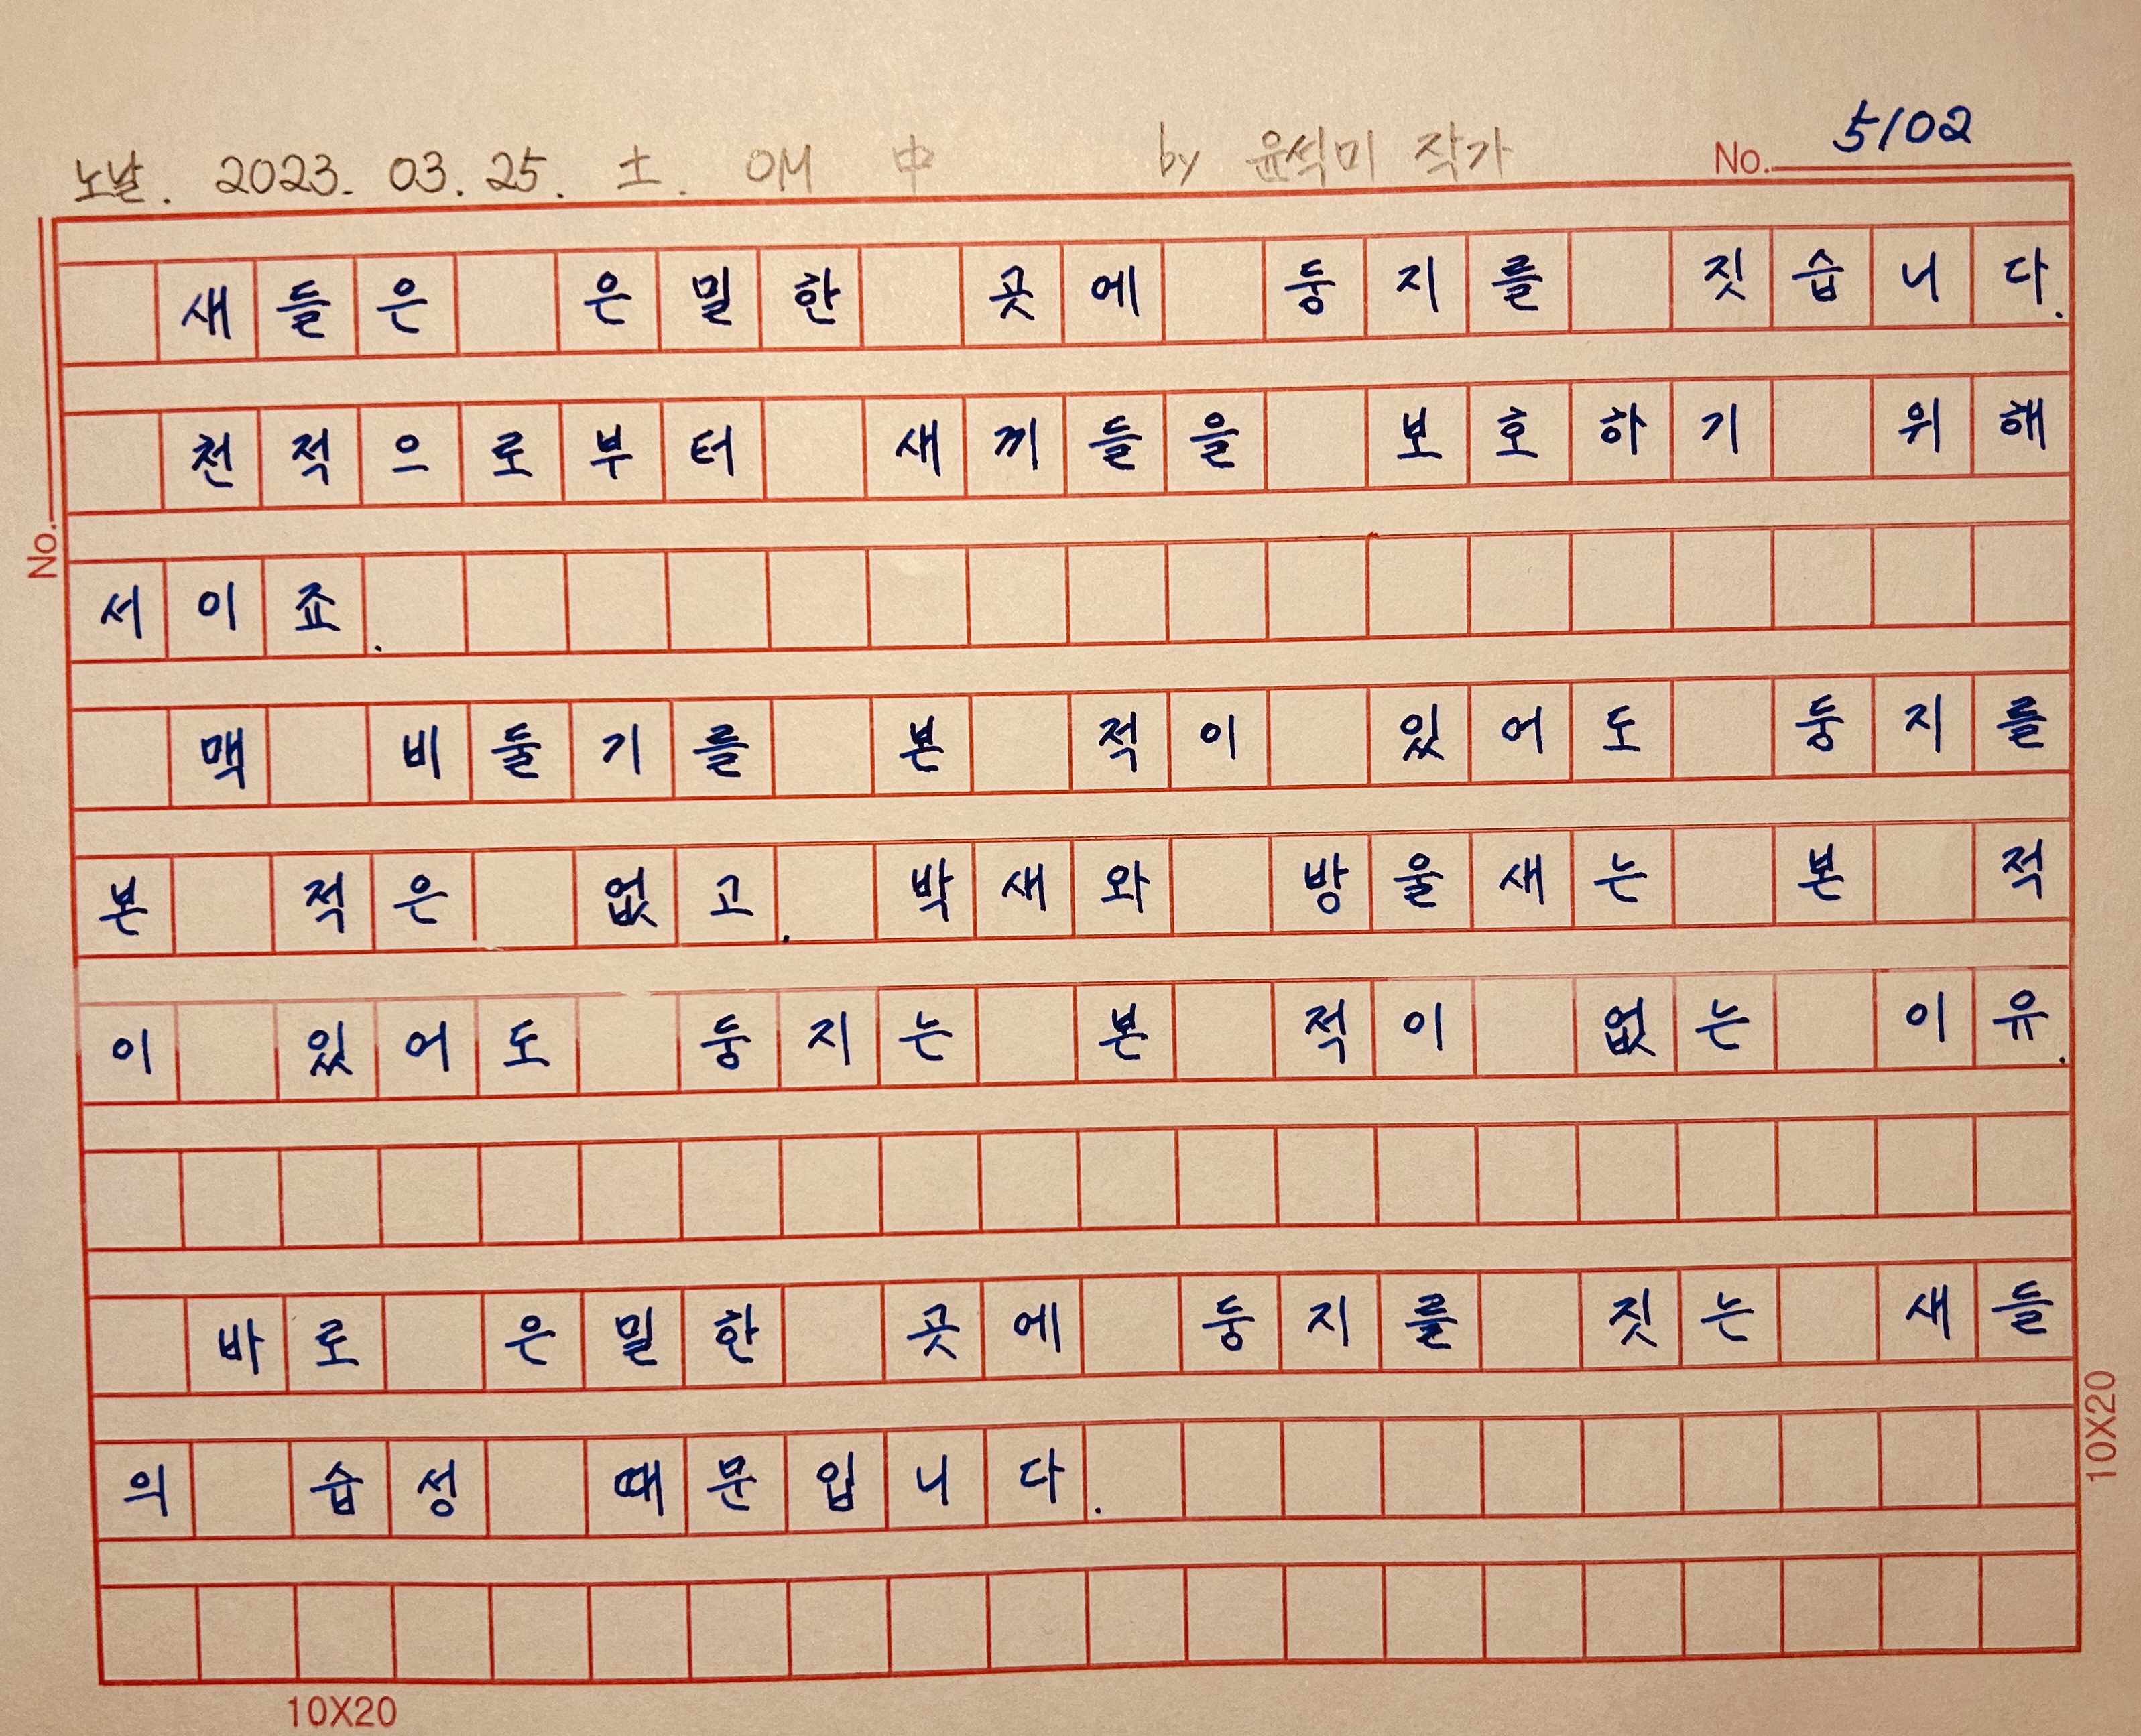 노날. 2023. 03. 25. 土. OM 中 by 윤석미 작가 No. 5102
새들은 은밀한 곳에 둥지를 짓습니다.
천적으로부터 새끼들을 보호하기 위해
서이죠.
맥 비둘기를 본 적이 있어도 둥지를
본 적은 없고. 박새와 방울새는 본 적
이 있어도 둥지는 본 적이 없는 이유.
바로 은밀한 곳에 둥지를 짓는 새들
의 습성 때문입니다.
No.
10X20
10X20